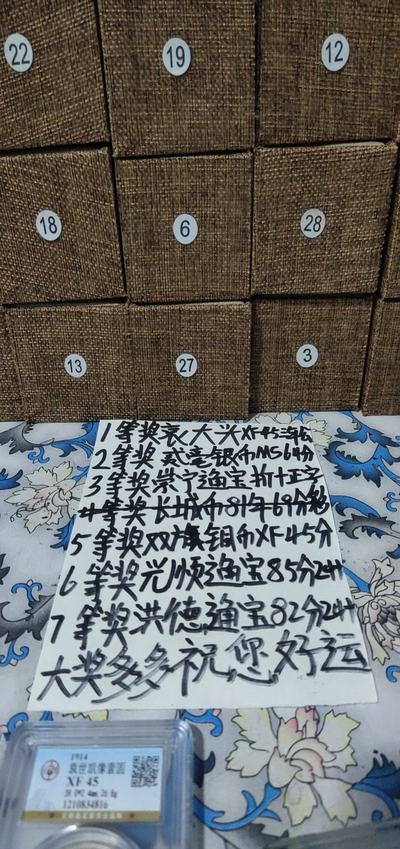 22
19
12
18
6
28
13
27
3
1等奖袁大头XF45三年
2等奖贰毫银币MS64分
3等奖崇宁通宝折十正字
4等奖长城币81年69分
5等奖双旗铜币XF45分
6等奖光顺通宝85分24H
7等奖洪德通宝82分24H
大奖多多祝您好运
1914
袁世凯像壹圆
XF 45
1210834816